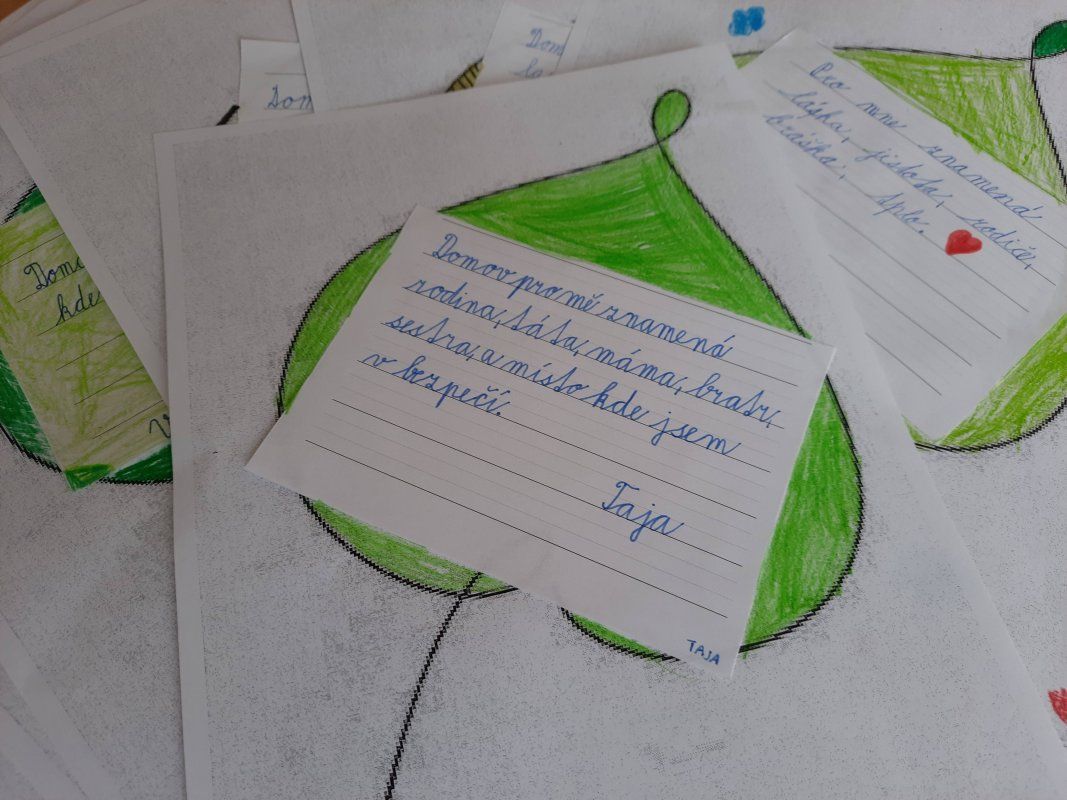 Dom
Dom
Pro mne znamená
láska, jistota, rodiče,
braška, tplo.
Domov pro mě znamená
rodina, táta, máma, bratr,
sestra, a místo kde jsem
v bezpečí.
Taja
TAJA
Domo
kde